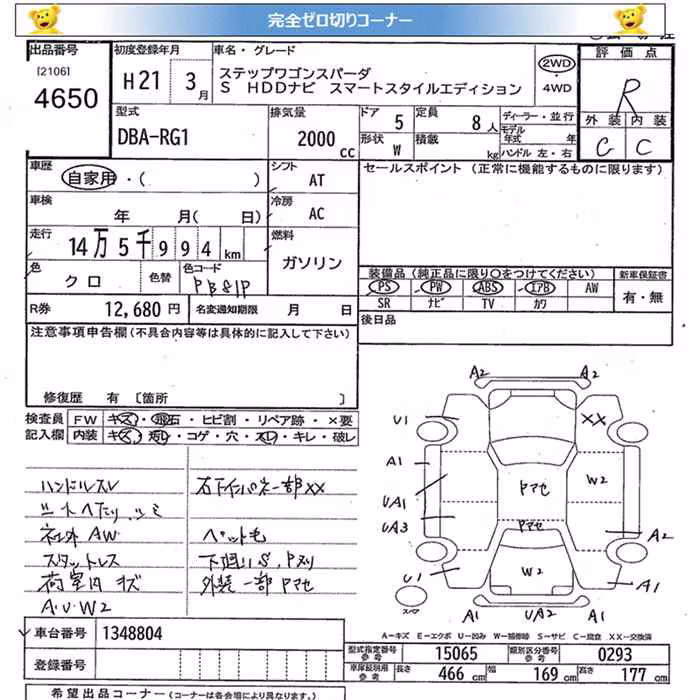 完全ゼロ切りコーナー
出品番号 初度登録年月 車名・グレード 評価点
[2106]
4650
H21 3月
ステップワゴンスパーダ
S HDDナビ スマートスタイルエディション
2WD
・
4WD
R
外装 内装
C C
型式 排気量 ドア 5 定員 8人 ディーラー・並行
DBA-RG1 2000cc 形状 W 積載 kg モデル年式 年
ハンドル 左・右
車歴 シフト セールスポイント (正常に機能するものに限ります)
自家用・( ) AT
車検 冷房
年 月( 日) AC
走行 燃料
14万5千994km ガソリン
色 色替 色コード
クロ PB81P
装備品 (純正品に限り○をつけてください) 新車保証書
PS PW ABS エアB AW 有・無
SR ナビ TV カワ
R券 12,680円 名変通知期限 月 日
後日品
注意事項申告欄(不具合内容等は具体的に記入して下さい)
修復歴 有 [箇所 ]
検査員 FW キズ・飛石・ヒビ割・リペア跡・×要
記入欄 内装 キズ・汚レ・コゲ・穴・スレ・キレ・破レ
ハンドルスレ
シートヘタリ、シミ
社外AW
スタットレス
荷室内キズ
A・U・W2
右下インパネ一部XX
ペット毛
下廻りS、Pヌリ
外装一部Pマセ
A2 A2
U1 XX
A1 Pマセ W2
UA1
UA3 Pマセ A2
U1 W2 A1
スペア
A1 UA2 A1
A-キズ E-エクボ U-凹み W-補修跡 S-サビ C-腐食 XX-交換済
車台番号 1348804
登録番号
型式指定番号 参考 15065 類別区分番号 参考 0293
車庫証明用 参考 長さ 466cm 幅 169cm 高さ 177cm
希望出品コーナー (コーナーは各会場により異なります。)